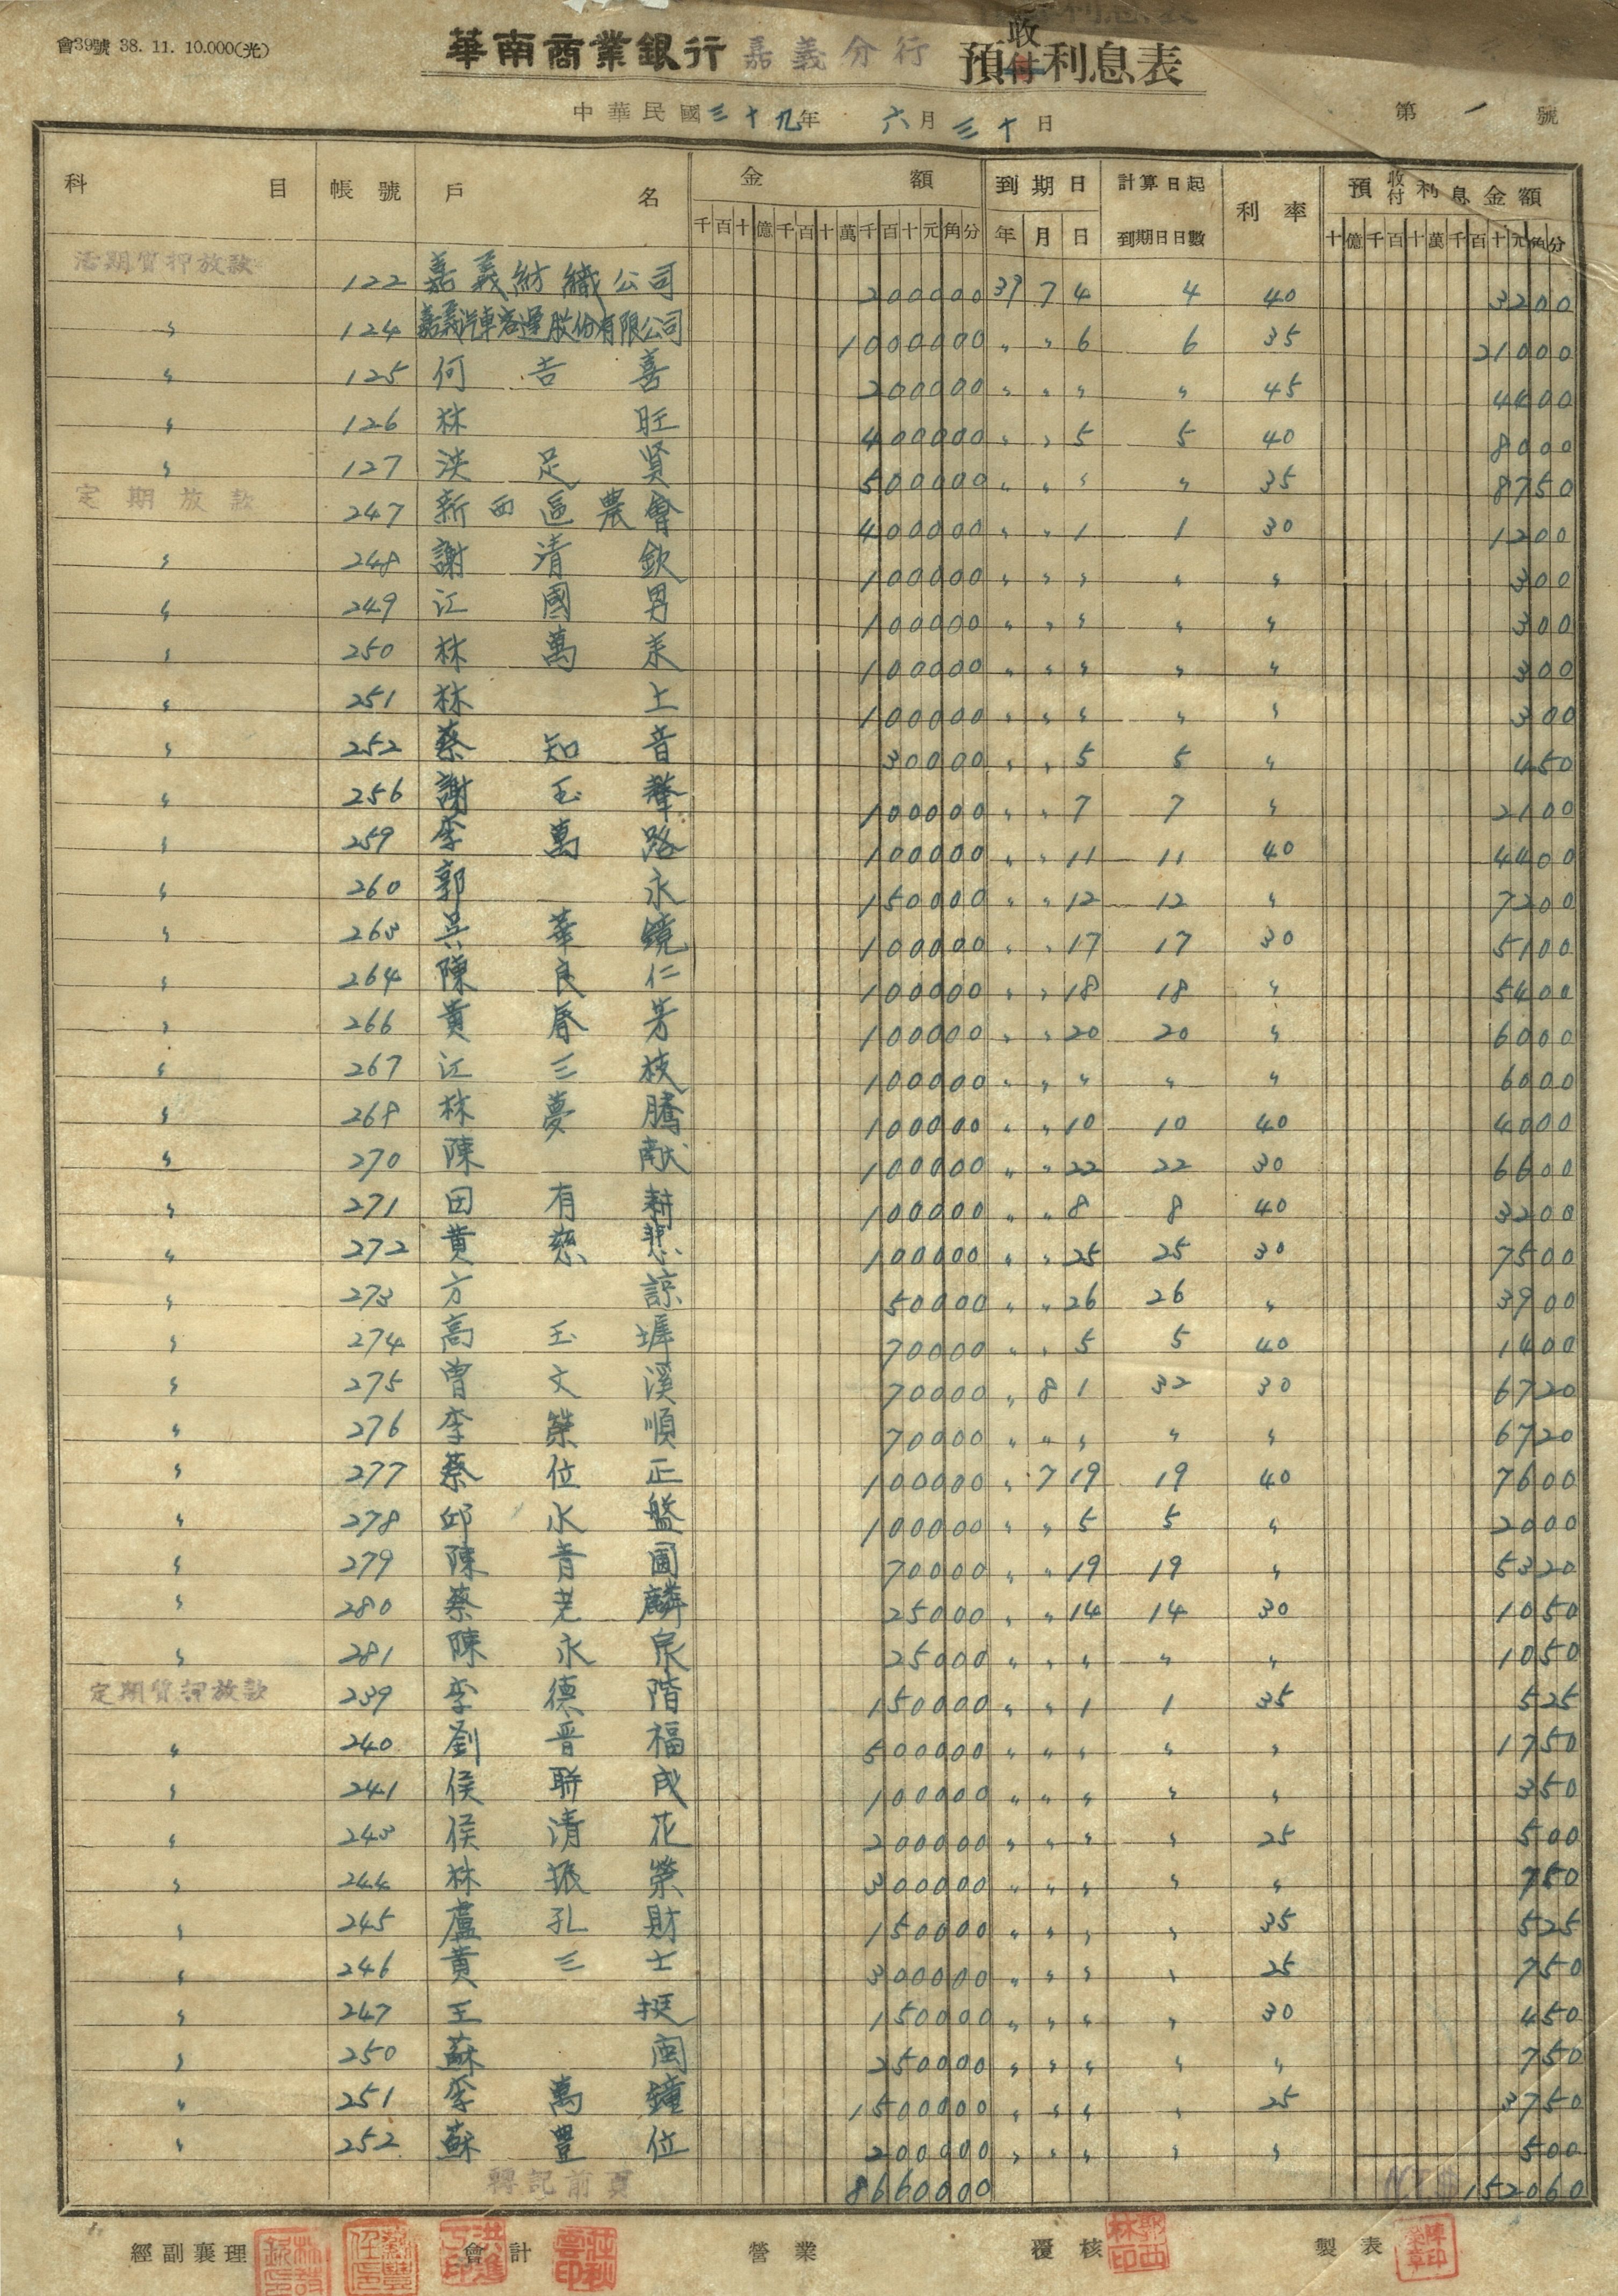 會39號 38. 11. 10.000(光)
華南商業銀行 嘉義分行 預收付利息表
中華民國三十九年 六月三十日 第 1 號
科目 帳號 戶名 金額 到期日 計算日起到期日日數 利率 預收付利息金額
千百十億千百十萬千百十元角分 年 月 日 十億千百十萬千百十元角分
活期質押放款 122 嘉義紡織公司 200000 39 7 4 4 40 3200
〃 124 嘉義汽車客運股份有限公司 1000000 〃 〃 6 6 35 21000
〃 125 何吉善 200000 〃 〃 〃 〃 45 4400
〃 126 林旺 400000 〃 〃 5 5 40 8000
〃 127 洪足賢 500000 〃 〃 〃 〃 35 8750
定期放款 247 新西區農會 400000 〃 〃 1 1 30 1200
〃 248 謝清欽 100000 〃 〃 〃 〃 〃 300
〃 249 江國男 100000 〃 〃 〃 〃 〃 300
〃 250 林萬 100000 〃 〃 〃 〃 〃 300
〃 251 林上 100000 〃 〃 〃 〃 〃 300
〃 252 蔡知音 30000 〃 〃 5 5 〃 450
〃 256 謝玉 100000 〃 〃 7 7 〃 2100
〃 259 李萬路 100000 〃 〃 11 11 40 4400
〃 260 郭永 150000 〃 〃 12 12 〃 7200
〃 263 吳華鏡 100000 〃 〃 17 17 30 5100
〃 264 陳良仁 100000 〃 〃 18 18 〃 5400
〃 266 黃春芳 100000 〃 〃 20 20 〃 6000
〃 267 江三枝 100000 〃 〃 〃 〃 〃 6000
〃 268 林夢騰 100000 〃 〃 10 10 40 4000
〃 270 陳献 100000 〃 〃 22 22 30 6600
〃 271 田有耕 100000 〃 〃 8 8 40 3200
〃 272 黃慈 100000 〃 〃 25 25 30 7500
〃 273 方諒 50000 〃 〃 26 26 〃 3900
〃 274 高玉墀 70000 〃 〃 5 5 40 1400
〃 275 曾文溪 70000 〃 8 1 32 30 6720
〃 276 李榮順 70000 〃 〃 〃 〃 〃 6720
〃 277 蔡位正 100000 〃 7 19 19 40 7600
〃 278 邱水盤 100000 〃 〃 5 5 〃 2000
〃 279 陳青圃 70000 〃 〃 19 19 〃 5320
〃 280 蔡麟 25000 〃 〃 14 14 30 1050
〃 281 陳永泉 25000 〃 〃 〃 〃 〃 1050
定期質押放款 239 李德階 150000 〃 〃 1 1 35 525
〃 240 劉晋福 500000 〃 〃 〃 〃 〃 1750
〃 241 侯聯成 100000 〃 〃 〃 〃 〃 350
〃 243 侯清花 200000 〃 〃 〃 〃 25 500
〃 244 林振榮 300000 〃 〃 〃 〃 〃 750
〃 245 盧孔財 150000 〃 〃 〃 〃 35 525
〃 246 黃三士 300000 〃 〃 〃 〃 25 750
〃 247 王挺 150000 〃 〃 〃 〃 30 450
〃 250 蘇闽 250000 〃 〃 〃 〃 〃 750
〃 251 李萬鐘 1500000 〃 〃 〃 〃 25 3750
〃 252 蘇豐位 200000 〃 〃 〃 〃 〃 500
轉記前頁 8660000 152060
經副襄理 會計 營業 覆核 製表